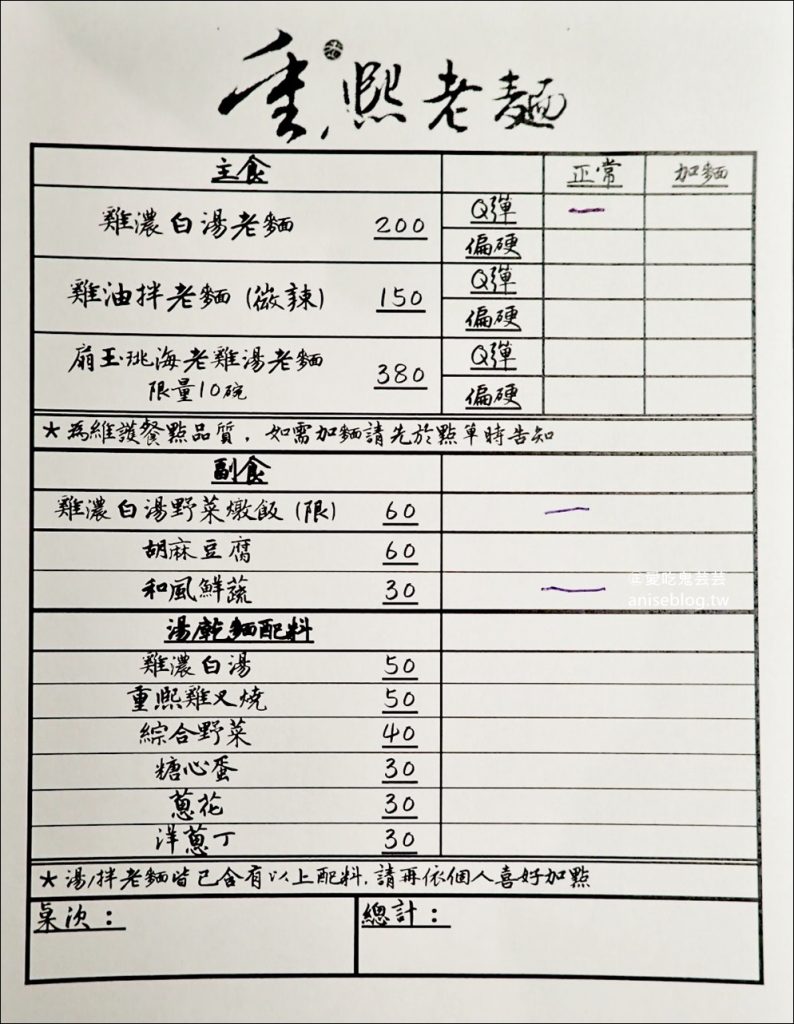 重熙老麵
主食 正常 加麵
雞濃白湯老麵 200 Q彈 一
偏硬
雞油拌老麵(微辣) 150 Q彈
偏硬
扇玉珧海老雞湯老麵 380 Q彈
限量10碗 偏硬
*為維護餐點品質,如需加麵請先於點單時告知
副食
雞濃白湯野菜燉飯(限) 60 一
胡麻豆腐 60
和風鮮蔬 30 一
@愛吃鬼芸芸
aniseblog.tw
湯/乾麵配料
雞濃白湯 50
重熙雞叉燒 50
綜合野菜 40
糖心蛋 30
蔥花 30
洋蔥丁 30
*湯/拌老麵皆已含有以上配料,請再依個人喜好加點
桌次: 總計: